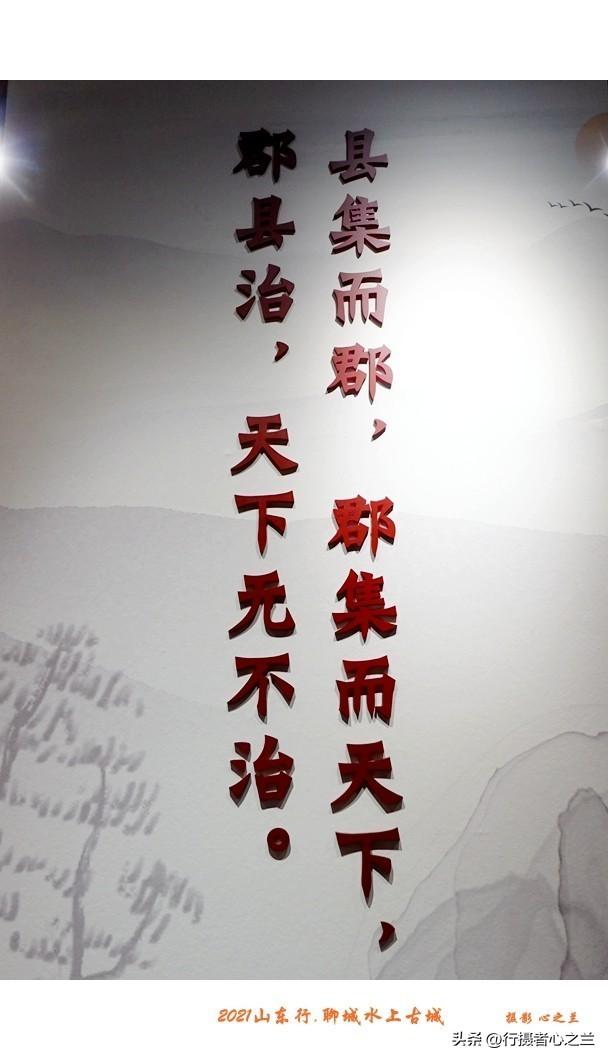 县集而郡，郡集而天下，
郡县治，天下无不治。
2021山东行.聊城水上古城
摄影 心之兰
头条 @行摄者心之兰